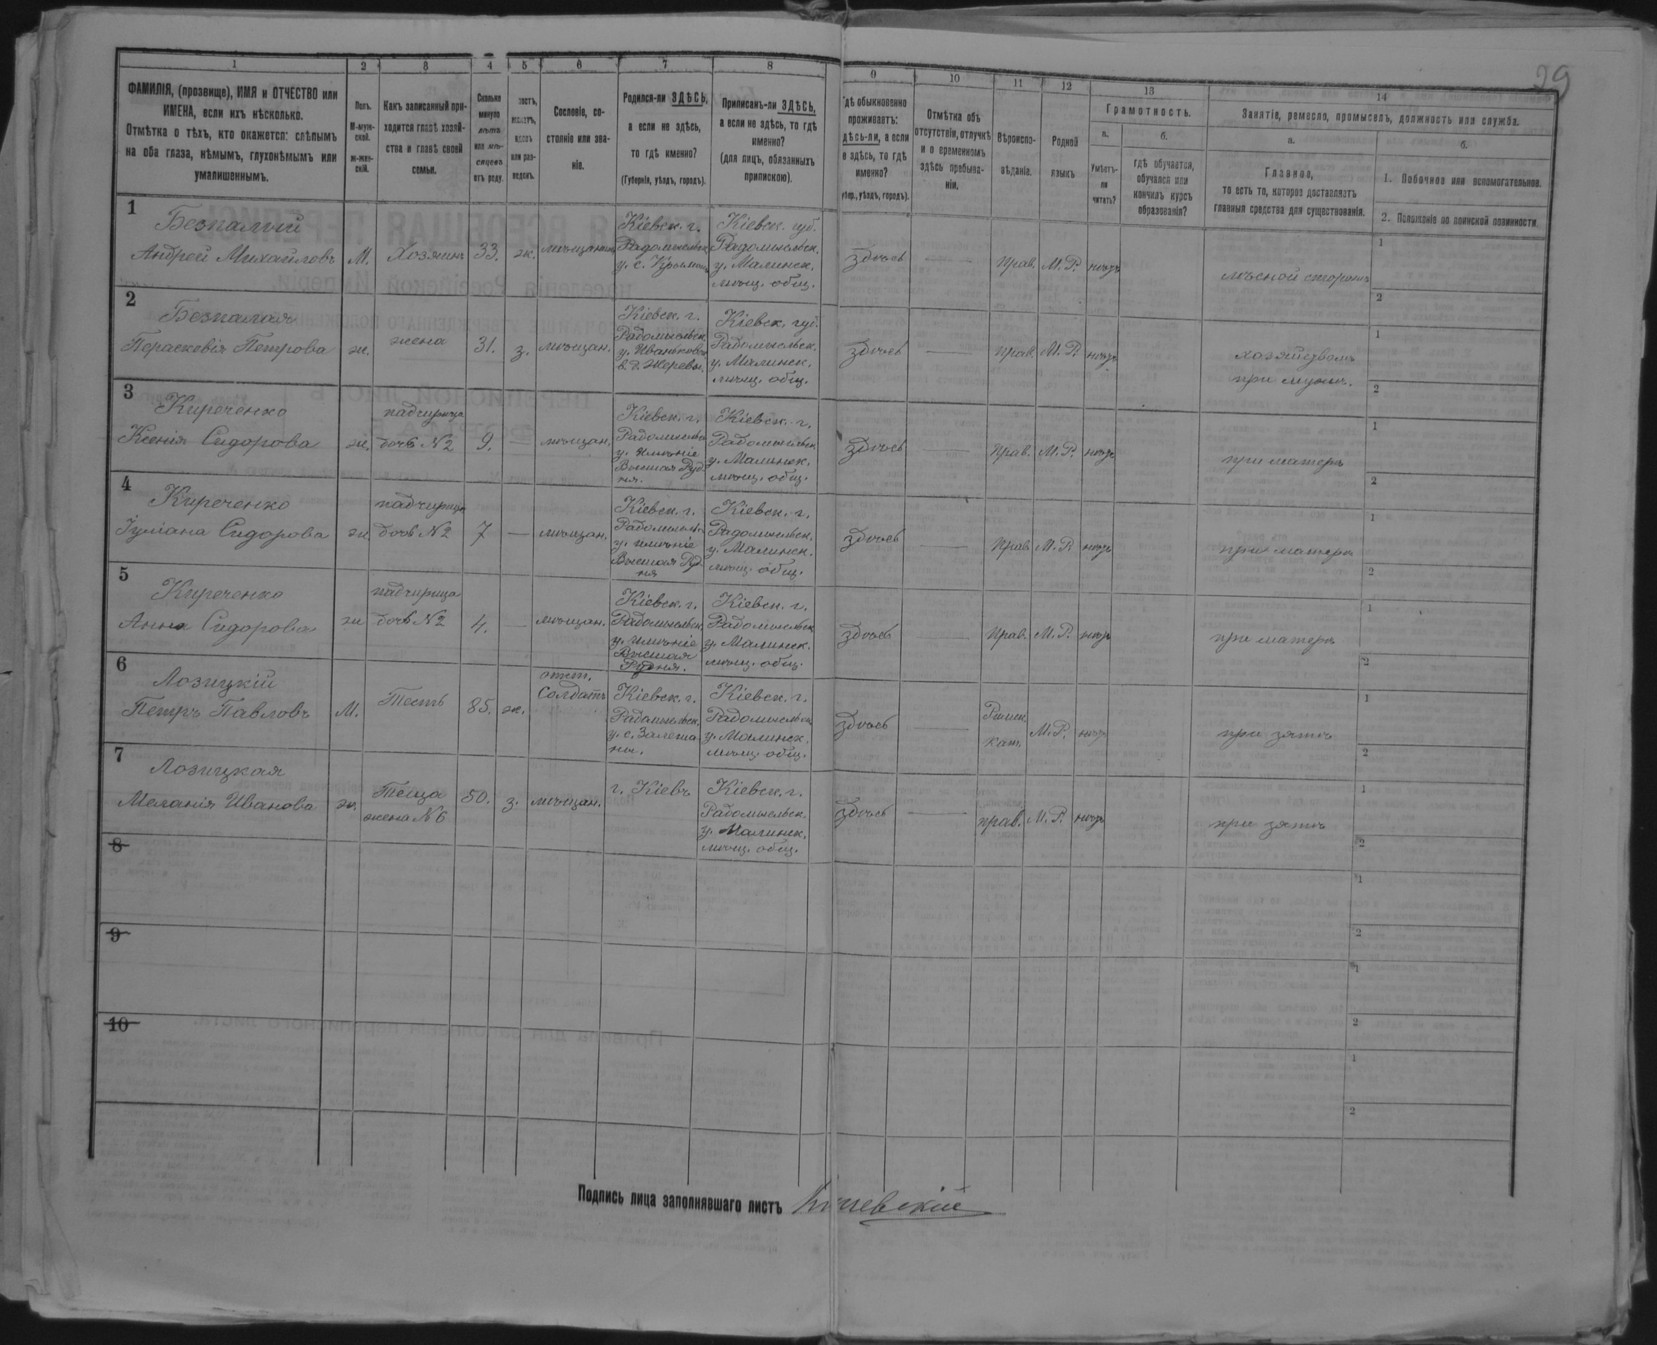 29
1 2 3 4 5 6 7 8 9 10 11 12 13 14
ФАМИЛІЯ, (прозвище), ИМЯ и ОТЧЕСТВО или
ИМЕНА, если ихъ нѣсколько.
Отмѣтка о тѣхъ, кто окажется: слѣпымъ
на оба глаза, нѣмымъ, глухонѣмымъ или
умалишеннымъ.
Полъ.
М-муж-
ской.
ж-жен-
скій.
Какъ записанный при-
ходится главѣ хозяй-
ства и главѣ своей
семьи.
Сколько
минуло
лѣтъ
или мѣ-
сяцевъ
отъ роду.
Сословіе, со-
стояніе или зва-
ніе.
Родился-ли ЗДѢСЬ,
а если не здѣсь,
то гдѣ именно?
(Губернія, уѣздъ, городъ).
Приписанъ-ли ЗДѢСЬ,
а если не здѣсь, то гдѣ
именно?
(для лицъ, обязанныхъ
припискою).
гдѣ обыкновенно
проживаетъ:
здѣсь-ли, а если
не здѣсь, то гдѣ
именно?
(губер., уѣздъ, городъ).
Отмѣтка объ
отсутствіи, отлучкѣ
и о временномъ
здѣсь пребыва-
ніи.
Вѣроиспо-
вѣданіе.
Родной
языкъ
Грамотность.
а.
Умѣетъ-
ли
читать?
б.
гдѣ обучается,
обучался или
кончилъ курсъ
образованія?
Занятіе, ремесло, промыселъ, должность или служба.
а.
Главное,
то есть то, которое доставляетъ
главныя средства для существованія.
б.
1. Побочное или вспомогательное.
2. Положеніе по воинской повинности.
1
Безпалый
Андрей Михайловъ М. Хозяинъ 33. ж. мѣщанинъ
Кіевск. г.
Радомысльск.
у. с.
Кіевск. губ.
Радомысльск.
у. Малинск.
мѣщ. общ.
здѣсь — прав. М. Р. нѣтъ
1
2
2
Безпалая
Параскевія Петрова ж. жена 31. з. мѣщан.
Кіевск. г.
Радомысльск.
у. Иванковск.
в. д. Жеревы.
Кіевск. губ.
Радомысльск.
у. Малинск.
мѣщ. общ.
здѣсь — прав. М. Р. нѣтъ
хозяйством
при мужѣ.
1
2
3
Киреченко
Ксенія Сидорова ж.
падчерица
дочь №2 9. — мѣщан.
Кіевск. г.
Радомысльск.
у. имѣніе
Вышшая Руд-
ня.
Кіевск. г.
Радомысльск.
у. Малинск.
мѣщ. общ.
здѣсь — прав. М. Р. нѣтъ при матери
1
2
4
Киреченко
Іуліана Сидорова ж.
падчерица
дочь №2 7 — мѣщан.
Кіевск. г.
Радомысльск.
у. имѣніе
Вышшая Руд-
ня
Кіевск. г.
Радомысльск.
у. Малинск.
мѣщ. общ.
здѣсь — прав М. Р. нѣтъ при матери
1
2
5
Киреченко
Анна Сидорова ж
падчерица
дочь №2 4. — мѣщан.
Кіевск. г.
Радомысльск.
у. имѣніе
Вышшая
Рудня.
Кіевск. г.
Радомысльск.
у. Малинск.
мѣщ. общ.
здѣсь — прав. М. Р. нѣтъ при матери
1
2
6
Лозицкій
Петръ Павловъ М. Тесть 85. ж.
отст.
Солдатъ
Кіевск. г.
Радомысльск.
у. с. Залеша
ны.
Кіевск. г.
Радомысльск.
у. Малинск.
мѣщ. общ.
здѣсь —
Римск
кат. М. Р. нѣтъ при зятѣ
1
2
7
Лозицкая
Меланія Иванова ж.
Теща
жена №6 50. з. мѣщан. г. Кіевъ
Кіевск. г.
Радомысльск.
у. Малинск.
мѣщ. общ.
здѣсь — прав. М. Р. нѣтъ при зятѣ
1
2
8
1
2
9
1
2
10
1
2
Подпись лица заполнявшаго листъ